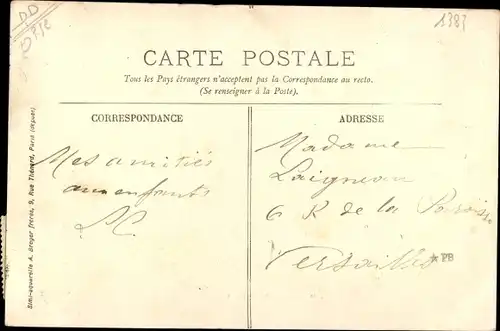 1383
CARTE POSTALE
Tous les Pays étrangers n'acceptent pas la Correspondance au recto.
(Se renseigner à la Poste).
CORRESPONDANCE
Mes amitiés
aux enfants
ADRESSE
Madame
Laigneau
6 R de la
Versailles
*PB
Simi-aquarelle A. Breger frères, 9, Rue Thénard, Paris